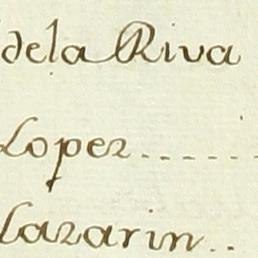 dela Riva
Lopez.......
Lazarin..